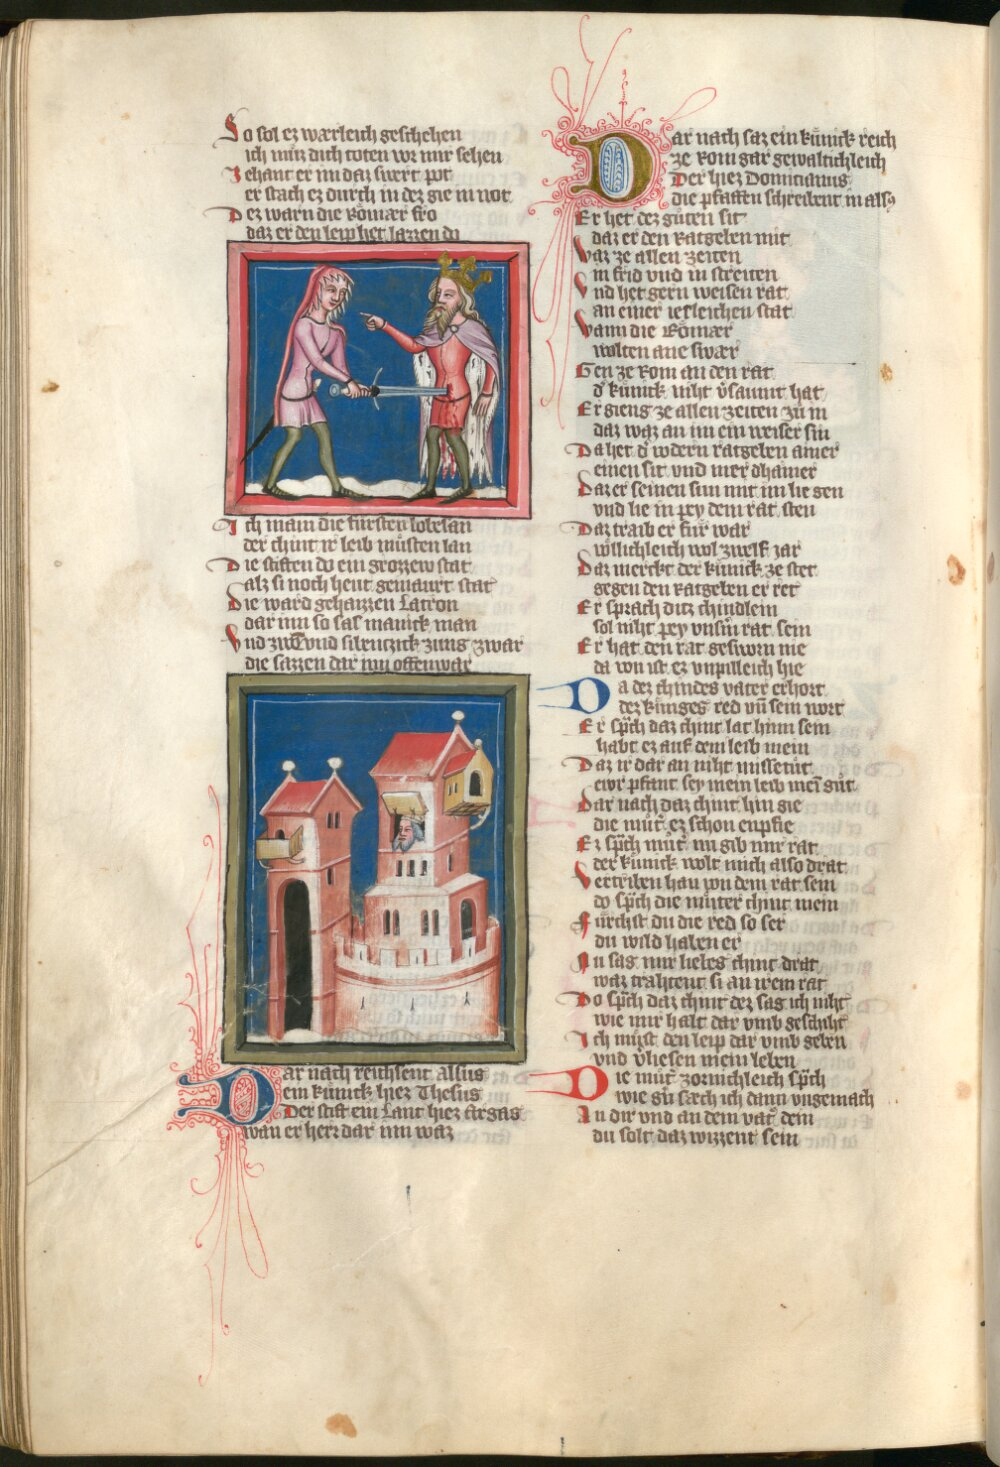 So sol ez wærleich geschehen
ich mĭz dich toten vor mir sehen
Zehant er im daz swert pot
er stach ez durch in dez gie in not
Dez warn die Rŏmær fro
daz er den leip het lazzen do
Ich main die fursten lobesan
der chint ir leib mŭsten lan
Die stiften do ein grozzew stat
alz si noch heut gemaurt stat
Die ward gehaizzen Latron
dar inn so sas manick man
Vnd zwen vnd sibentzick zung zwar
die sazzen dar inn offenwar
Dar nach reichsent Alsus
ein kŭnick hiez Thesus
Der stift ein lant hiez Argas
wan er herr dar inn waz
Dar nach saz ein kŭnick reich
ze Rom gar gewaltichleich
Der hiez Domicianus
die pfaffen schreibent in alsꝰ
Er het dez gŭten sit
daz er den Ratgeben mit
Waz ze allen zeiten
In frid vnd in streiten
Vnd het gern weisen rat
an einer iesleichen stat
Wann die Rŏmær
wolten ane swær
Gen ze Rom an den rat
d' kŭnick niht v'saumt hat
Er gieng ze allen zeiten zŭ in
daz waz an im ein weiser sin
Da het d' wdern ratgeben ainer
einen sit vnd mer dhainer
Daz er seinen sun mit im lie gen
vnd lie in pey dem rat sten
Daz traib er fur war
willichleich wol zwelf iar
Daz merckt der kŭnick ze stet
gegen den Ratgeben er ret
Er sprach ditz chindlein
sol niht pey vnsm̄ rat sein
Er hat den rat gesworn nie
da von ist ez vnpilleich hie
Da dez chindes vater erhort
dez kŭniges red vn̄ sein wort
Er sp̄ch daz chint lat hinn sein
habt ez auf dem leib mein
Daz ir dar an niht missetŭt
ewr pfant sey mein leib mein gŭt
Dar nach daz chint hin gie
die mŭt' ez schon enpfie
Ez sp̄ch mŭt' nu gib mir rat
der kŭnick wolt mich also drat
Vertriben han von dem rat sein
do sp̄ch die mŭter chint mein
Fŭrchst du die red so ser
du wild haben er
Nu sag mir liebes chint drat
waz trahtent si an irem rat
Do sp̄ch daz chint dez sag ich niht
wie mir halt dar vmb geschiht
Ich mŭst den leip dar vmb geben
vnd v'liesen mein leben
Die mŭt' zornichleich sp̄ch
wie gŭ sæch ich dann vngemach
An dir vnd an dem vat' dein
du solt daz wizzent sein